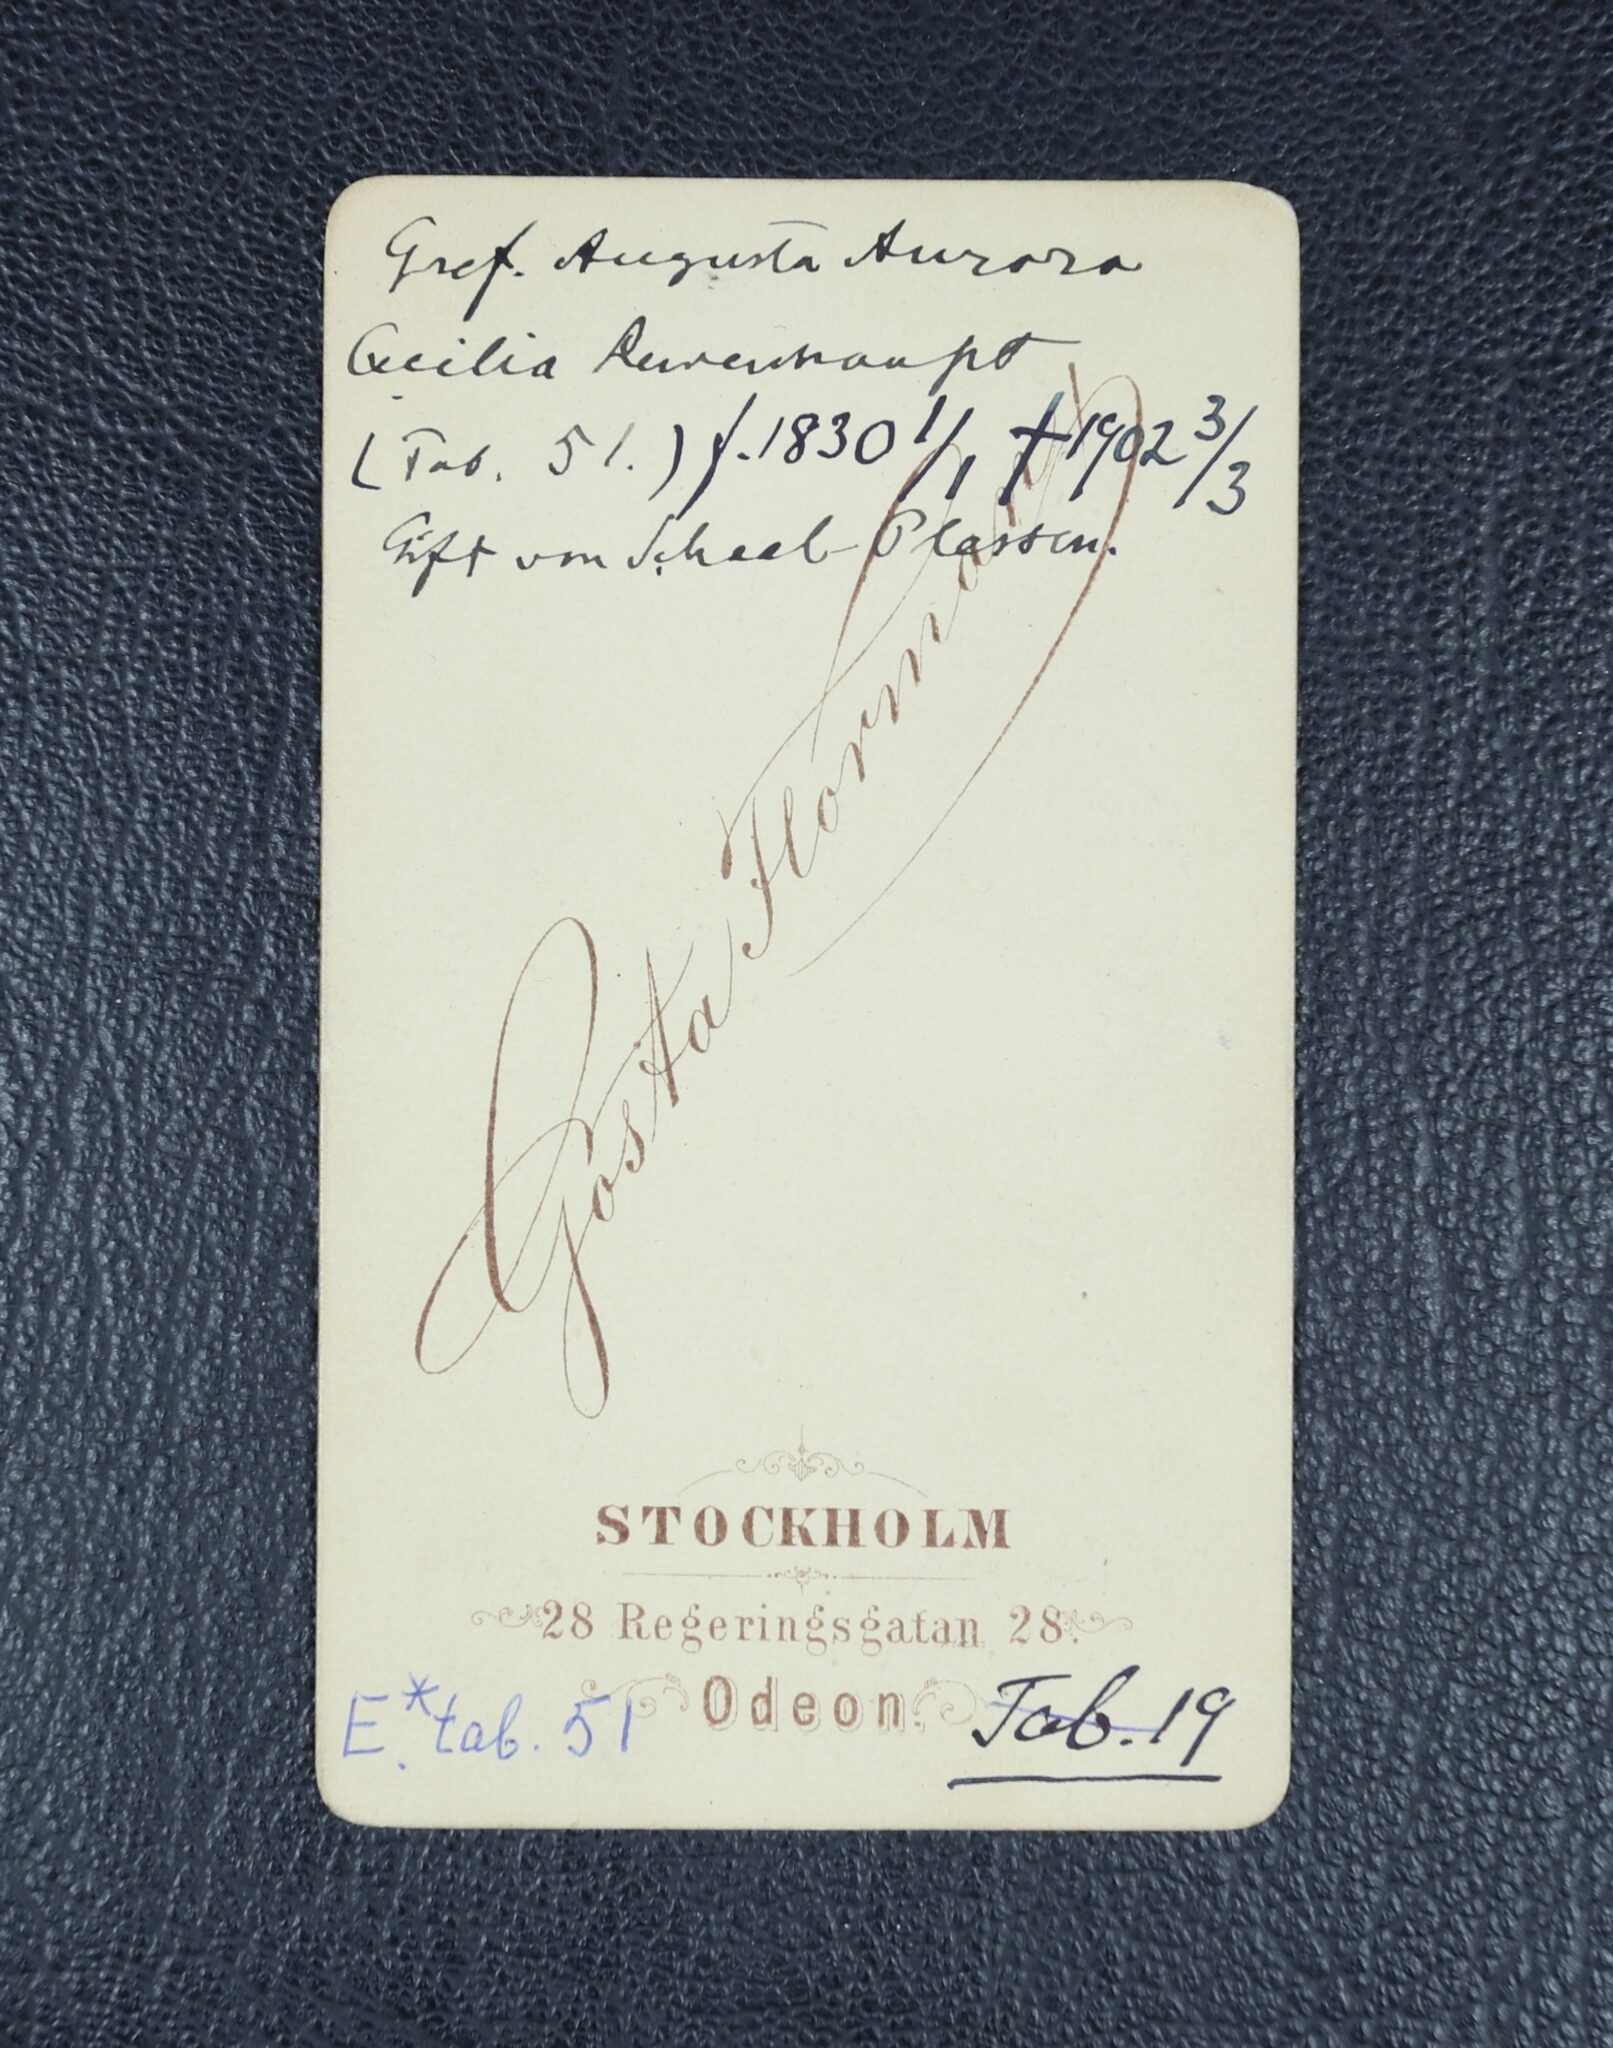 Gref. Augusta Aurora
Cecilia Lewenhaupt
(Tab. 51.) f. 1830 1/1 † 1902 3/3
Gift von Scheel-Plessen.
Gösta Florman
STOCKHOLM
28 Regeringsgatan 28.
Odeon.
E* tab. 51
Tab. 19